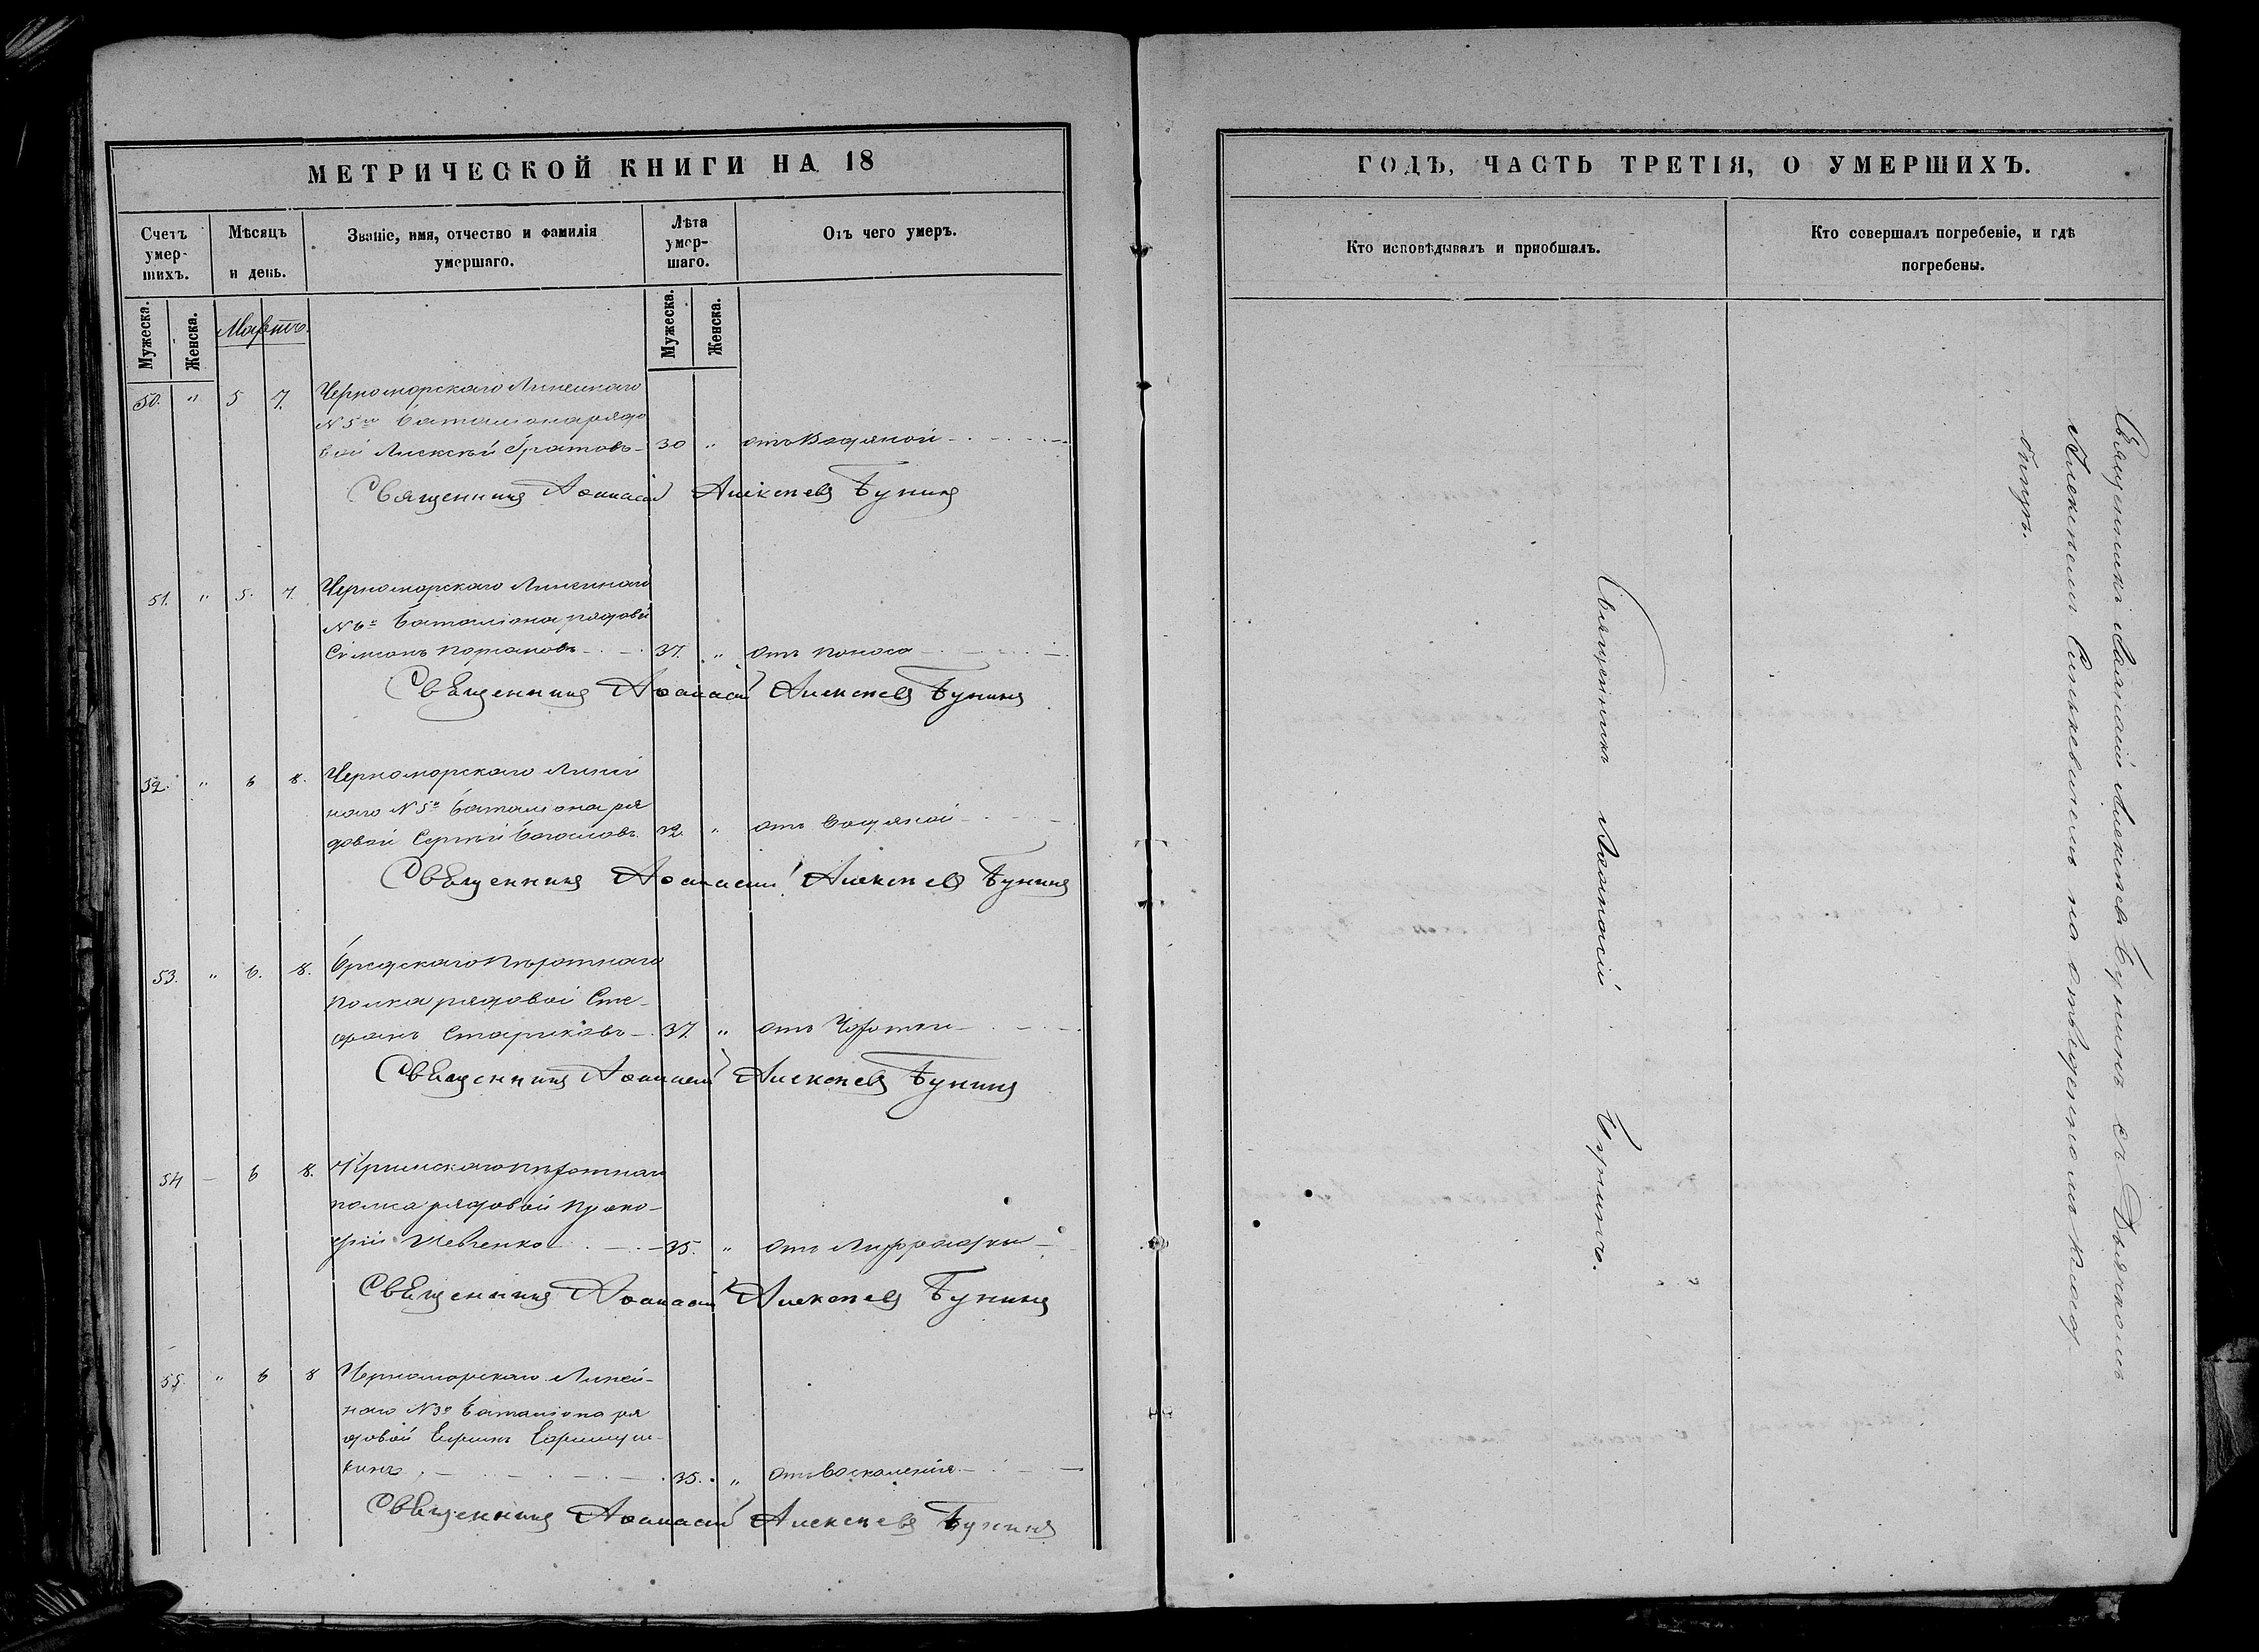 МЕТРИЧЕСКОЙ КНИГИ НА 18
Счетъ умер-шихъ.
Мѣсяцъ и день.
Званіе, имя, отчество и фамилія умершаго.
Лѣта умер-шаго.
Отъ чего умеръ.
Мужеска.
Женска.
Мартъ.
Мужеска.
Женска.
50. " 5 7. Черноморскаго Линейнаго
N 5го баталіона рядо
вой Алексѣй 30 " отъ Водяной
Священникъ Аѳанасій Алексѣевъ Бунинъ
51. " 5. 7. Черноморскаго Линейнаго
N 6го баталіона рядовой
Симеонъ 37. " отъ поноса
Священникъ Аѳанасій Алексѣевъ Бунинъ
52. " 6 8. Черноморскаго Линей
наго N 5го баталіона ря
довой Сергѣй Богословъ 32. " отъ водяной
Священникъ Аѳанасій Алексѣевъ Бунинъ
53. " 6. 8. Брестскаго Пѣхотнаго
полка рядовой Сте-
фанъ Стариковъ 37. " отъ Чахотки
Священникъ Аѳанасій Алексѣевъ Бунинъ
54 – 6 8. Крымскаго пѣхотнаго
полка рядовой Проко-
фій Шевченко 35. "
Священникъ Аѳанасій Алексѣевъ Бунинъ
55. " 6 8 Черноморскаго Линей-
наго N 3го баталіона ря
довой
кинъ 35. " отъ воспаленія
Священникъ Аѳанасій Алексѣевъ Бунинъ
ГОДЪ, ЧАСТЬ ТРЕТІЯ, О УМЕРШИХЪ.
Кто исповѣдывалъ и пріобщалъ.
Кто совершалъ погребеніе, и гдѣ погребены.
Священникъ Аѳанасій Бунинъ.
Священникъ Аѳанасій Алексѣевъ Бунинъ съ Дьячкомъ
Алексѣемъ Синькевичемъ на отведенномъ клад-
бищѣ.